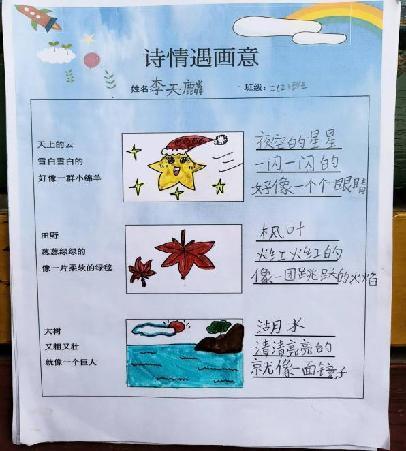 诗情遇画意
姓名 李天麟 班级:
天上的云
雪白雪白的
好像一群小绵羊
夜空的星星
一闪一闪的
好像一个个眼睛
田野
葱葱绿绿的
像一片柔软的绿毯
枫叶
火红火红的
像一团跳跃的火焰
大树
又粗又壮
就像一个巨人
湖水
清清亮亮的
就像一面镜子